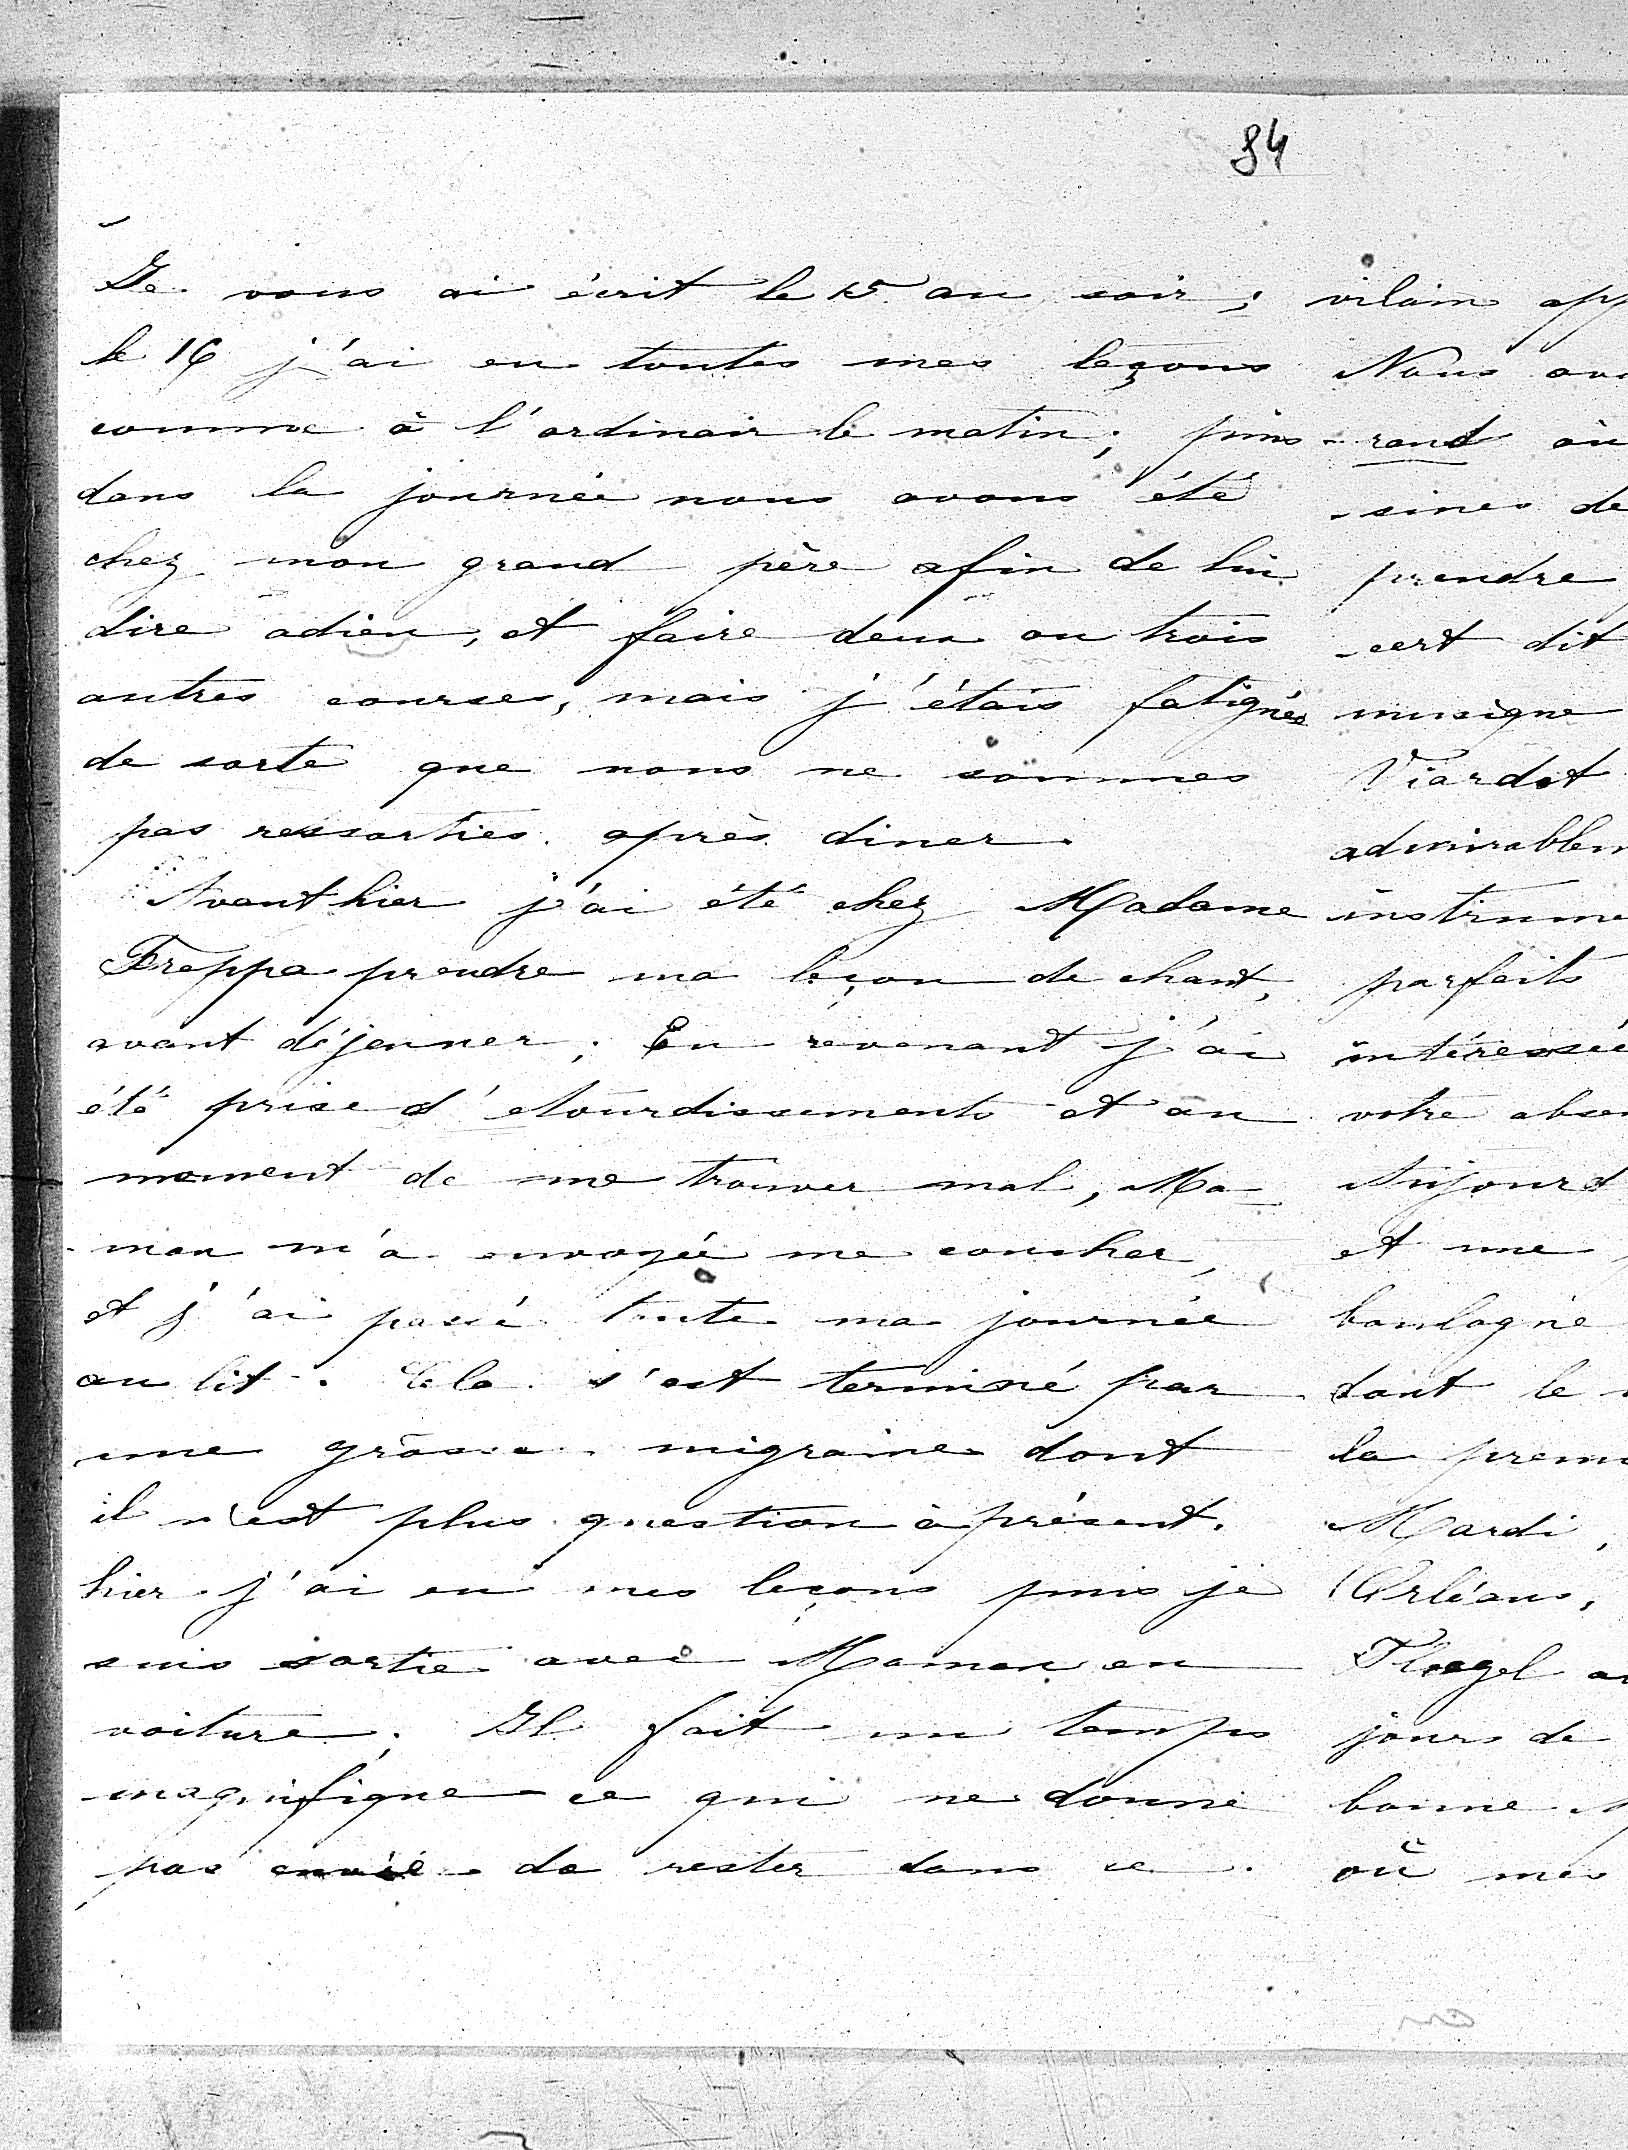 84
Je vous ai écrit le 15 au soir ;
le 16 j'ai eu toutes mes leçons
comme à l'ordinair le matin ; puis
dans la journée nous avons été
chez mon grand père afin de lui
dire adieu, et faire deux ou trois
autres courses, mais j'étais fatiguée
de sorte que nous ne sommes
pas ressorties après diner.
Avant hier j'ai été chez Madame
Freppa prendre ma leçon de chant,
avant déjeuner ; En revenant j'ai
été prise d'etourdissements et au
moment de me trouver mal, Ma-
-man m'a envoyée me coucher,
et j'ai passé toute ma journée
au lit. Cela s'est terminé par
une grosse migraine dont
il n'est plus question à présent.
hier j'ai eu mes leçons puis je
suis sortie avec Maman en
voiture. Il fait un temps
magnifique ce qui ne donne
pas envie de rester dans ce
vilain app
Nous avo
-rand où
-sines de
prendre
-cert dit
musique
Viardot
admirablem
instrume
parfaits
intéressée
votre absen
Aujourd
et une
boulogne
dont le
la premi
Mardi,
Orléans,
Flegel
jours de
bonne
où mes